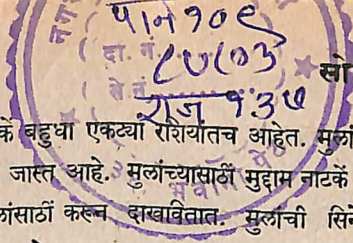 पान १०९
(दा. नं.
८५८०३
सो
राज १३७
कें बहुधा एकट्या रशियांतच आहेत. मुला
जास्त आहे. मुलांच्यासाठीं मुद्दाम नाटकें
लांसाठीं करून दाखवितात. मुलांची सिने